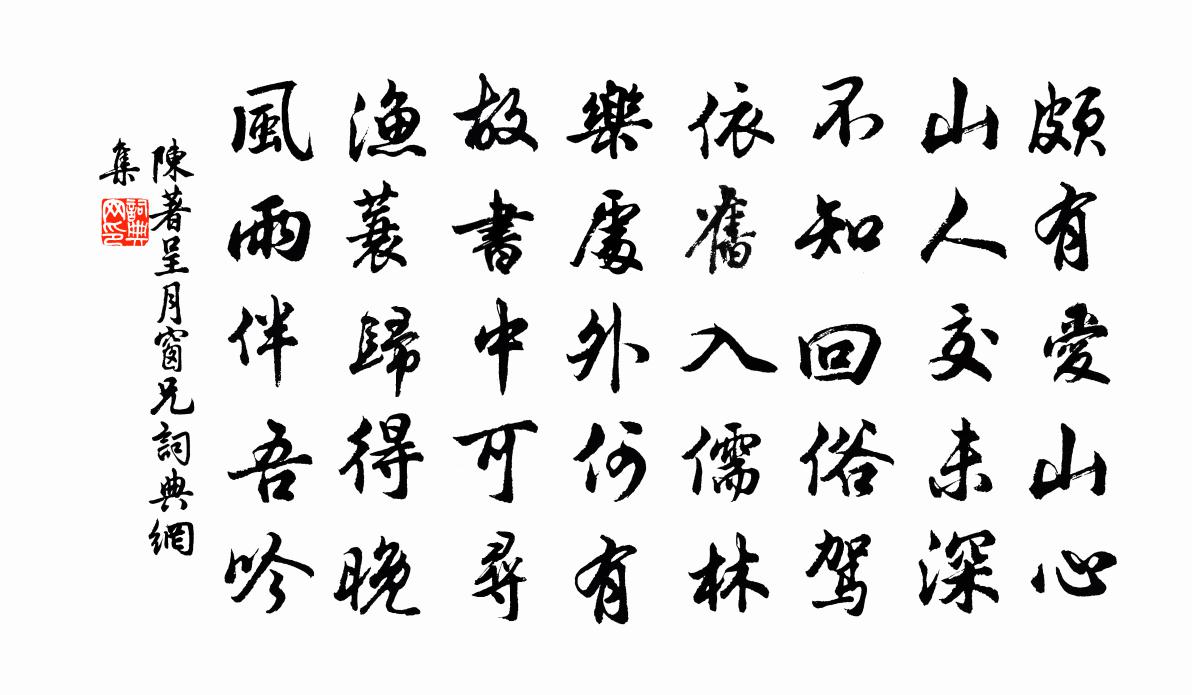 頗有愛山心
山人交未深
不知回俗駕
依舊入儒林
樂處外何有
故書中可尋
漁蓑歸得晚
風雨伴吾吟
陳著呈月窗兄詞典網
集
詞典
网印